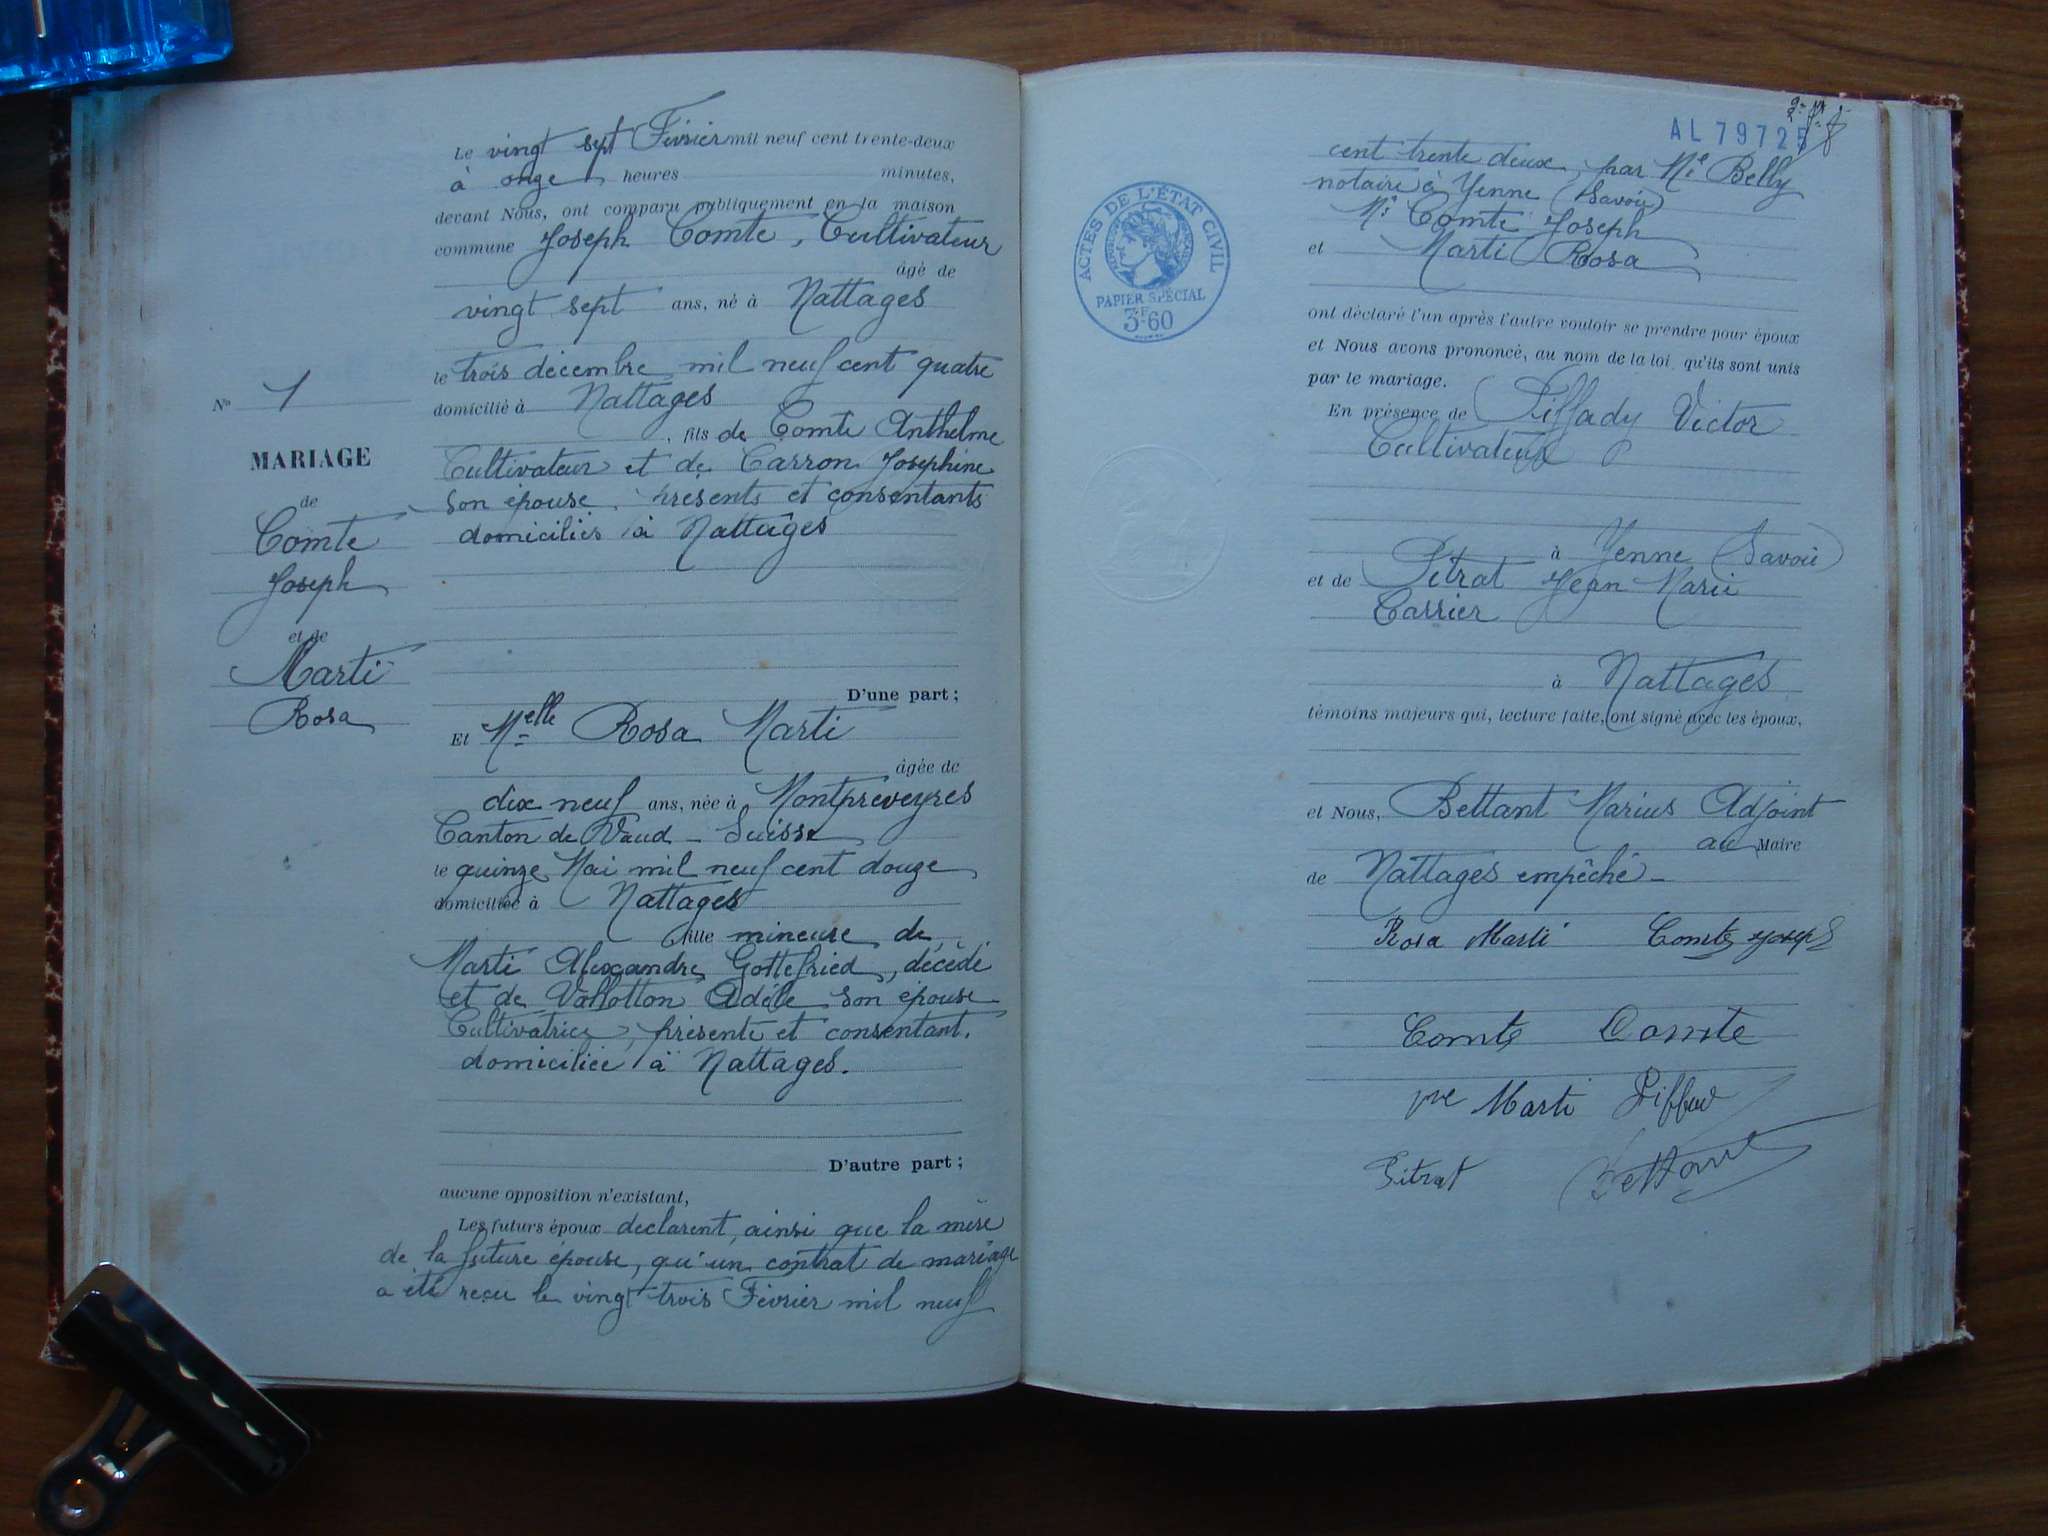 Le vingt sept Février mil neuf cent trente-deux
à onze heures minutes,
devant Nous, ont comparu publiquement en la maison
commune Joseph Comte, Cultivateur
âgé de
vingt sept ans, né à Nattages
le trois décembre mil neuf cent quatre
domicilié à Nattages
, fils de Comte Anthelme
Cultivateur et de Carron Josephine
son épouse, présents et consentants
domiciliés à Nattages
D'une part ;
Nº 1
MARIAGE
de
Comte
Joseph
et de
Marti
Rosa
Et Melle Rosa Marti
âgée de
dix neuf ans, née à Montpreveyres
Canton de Vaud - Suisse
le quinze Mai mil neuf cent douze
domiciliée à Nattages
fille mineure de
Marti Alexandre Gottefried, décédé
et de Vallotton Adèle son épouse
Cultivatrice, présente et consentant.
domiciliée à Nattages.
D'autre part ;
aucune opposition n'existant,
Les futurs époux declarent, ainsi que la mère
de la future épouse, qu'un contrat de mariage
a été reçu le vingt trois Février mil neuf
AL 79725
cent trente deux, par Me Belly
notaire à Yenne (Savoie)
Mr Comte Joseph
et Marti Rosa
ACTES DE L'ÉTAT CIVIL
PAPIER SPÉCIAL
3F60
ont déclaré l'un après l'autre vouloir se prendre pour époux
et Nous avons prononcé, au nom de la loi, qu'ils sont unis
par le mariage.
En présence de Piffady Victor
Cultivateur
à Yenne (Savoie)
et de Pitrat Jean Marie
Carrier
à Nattages
témoins majeurs qui, lecture faite, ont signé avec les époux,
et Nous, Bettant Marius Adjoint
au Maire
de Nattages empêché -
Rosa Marti Comte Joseph
Comte Comte
Marti
Pitrat Bettant